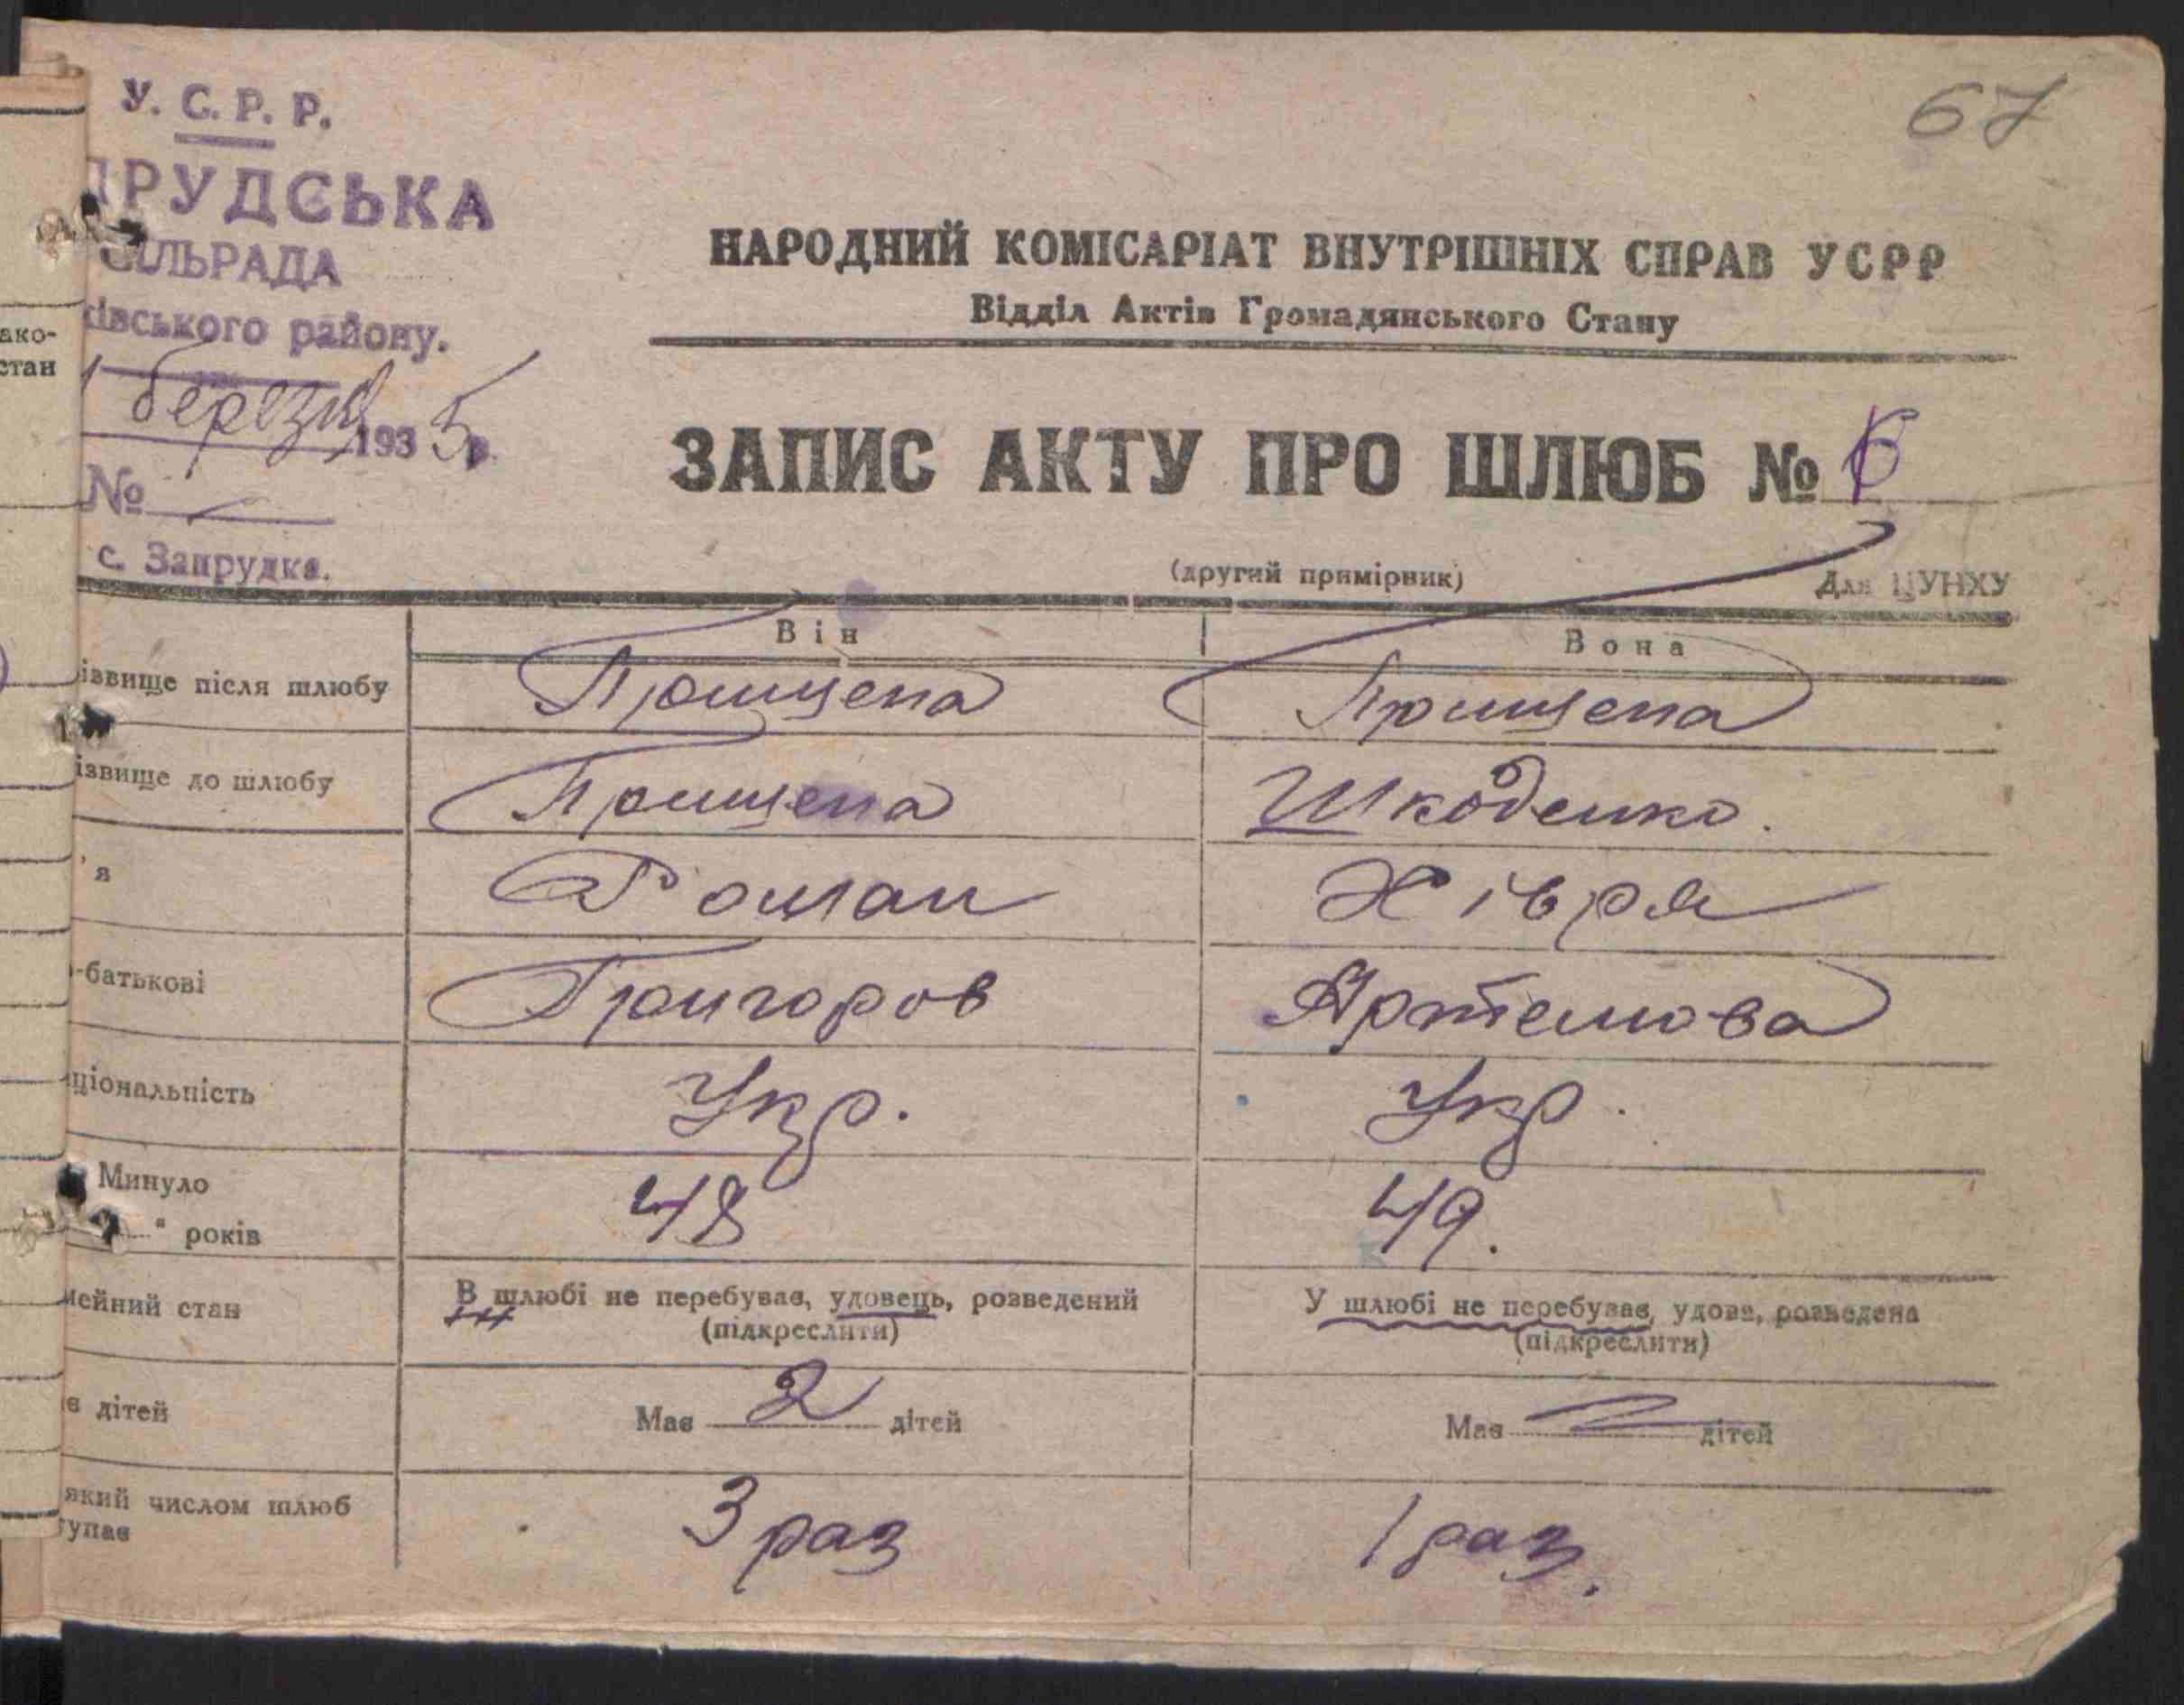 67
У. С. Р. Р.
ПРУДСЬКА
СІЛЬРАДА
ківського району.
березня 1935 р.
№ —
с. Запрудка.
НАРОДНИЙ КОМІСАРІАТ ВНУТРІШНІХ СПРАВ УСРР
Відділ Актів Громадянського Стану
ЗАПИС АКТУ ПРО ШЛЮБ № 6
(другий примірник) Для ЦУНХУ
ако-
стан
Він Вона
ізвище після шлюбу Прищепа Прищепа
ізвище до шлюбу Прищепа Шкоденко.
'я Роман Хівря
-батькові Григоров Артемова
ціональність Укр. Укр.
Минуло
" років 48 49.
мейний стан В шлюбі не перебував, удовець, розведений У шлюбі не перебував, удова, розведена
(підкреслити) (підкреслити)
є дітей Має 2 дітей Має — дітей
який числом шлюб
тупає 3 раз 1 раз.